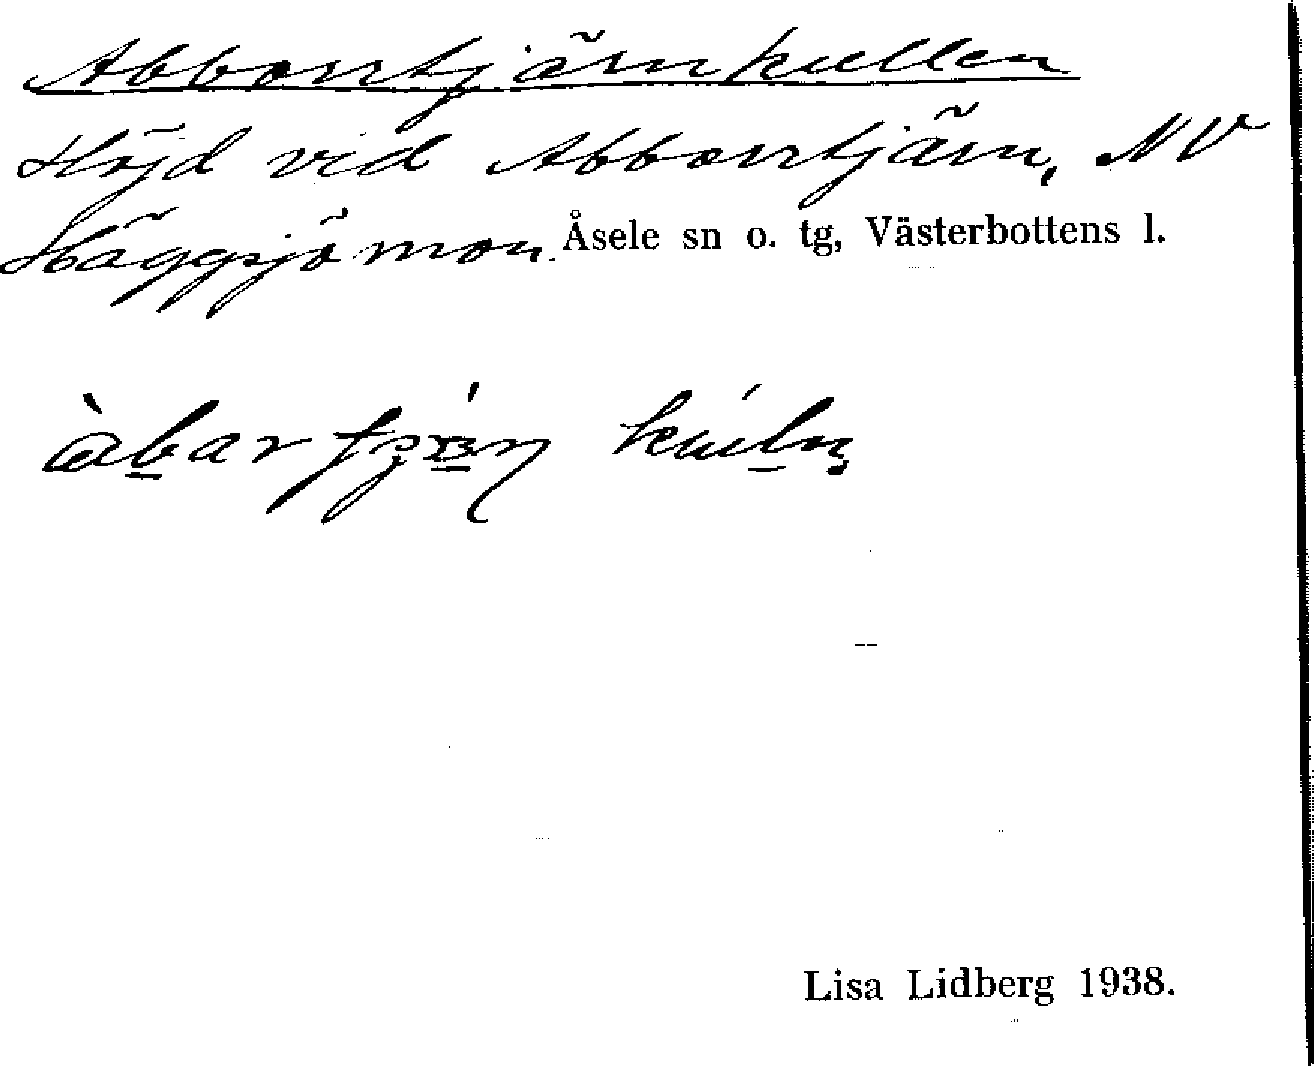 Abborrtjärnkullen
Höjd vid Abborrtjärn, NV
Häggsjömon. Åsele sn o. tg, Västerbottens l.
Lisa Lidberg 1938.